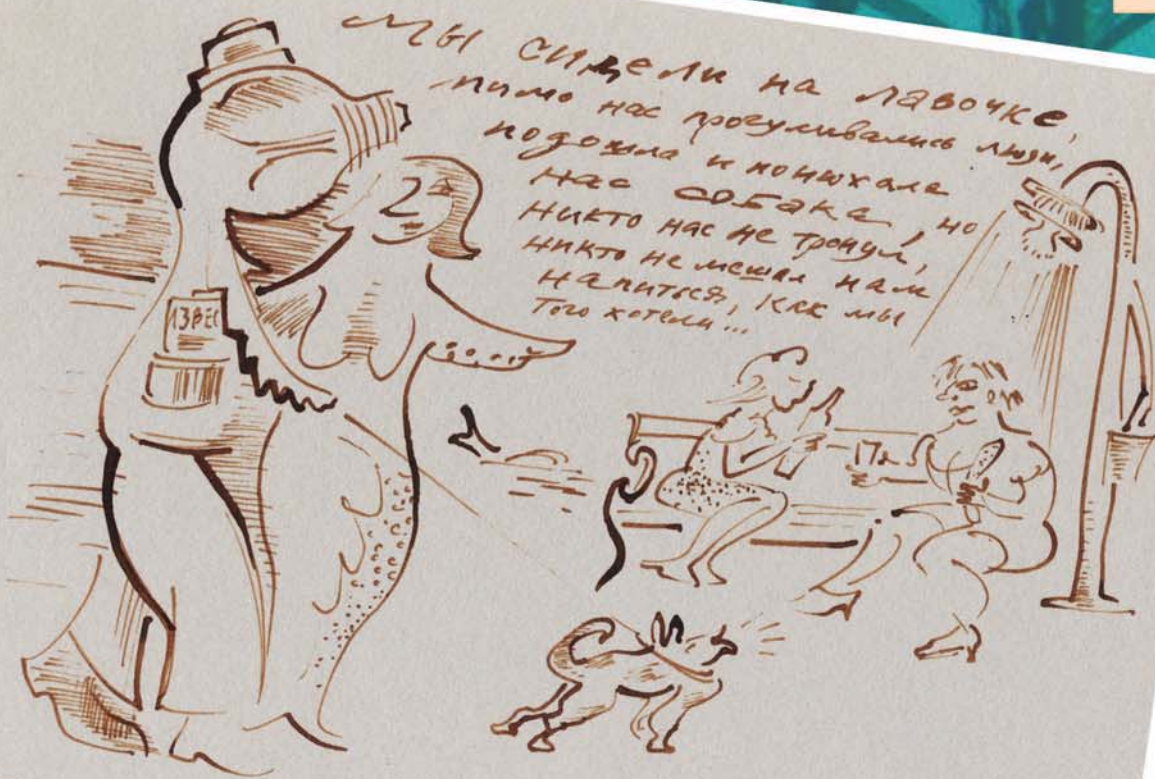 Мы сидели на лавочке,
мимо нас прогуливались люди,
подошла и понюхала
нас собака, но
никто нас не тронул,
никто не мешал нам
напиться, как мы
того хотели...
ИЗВЕС